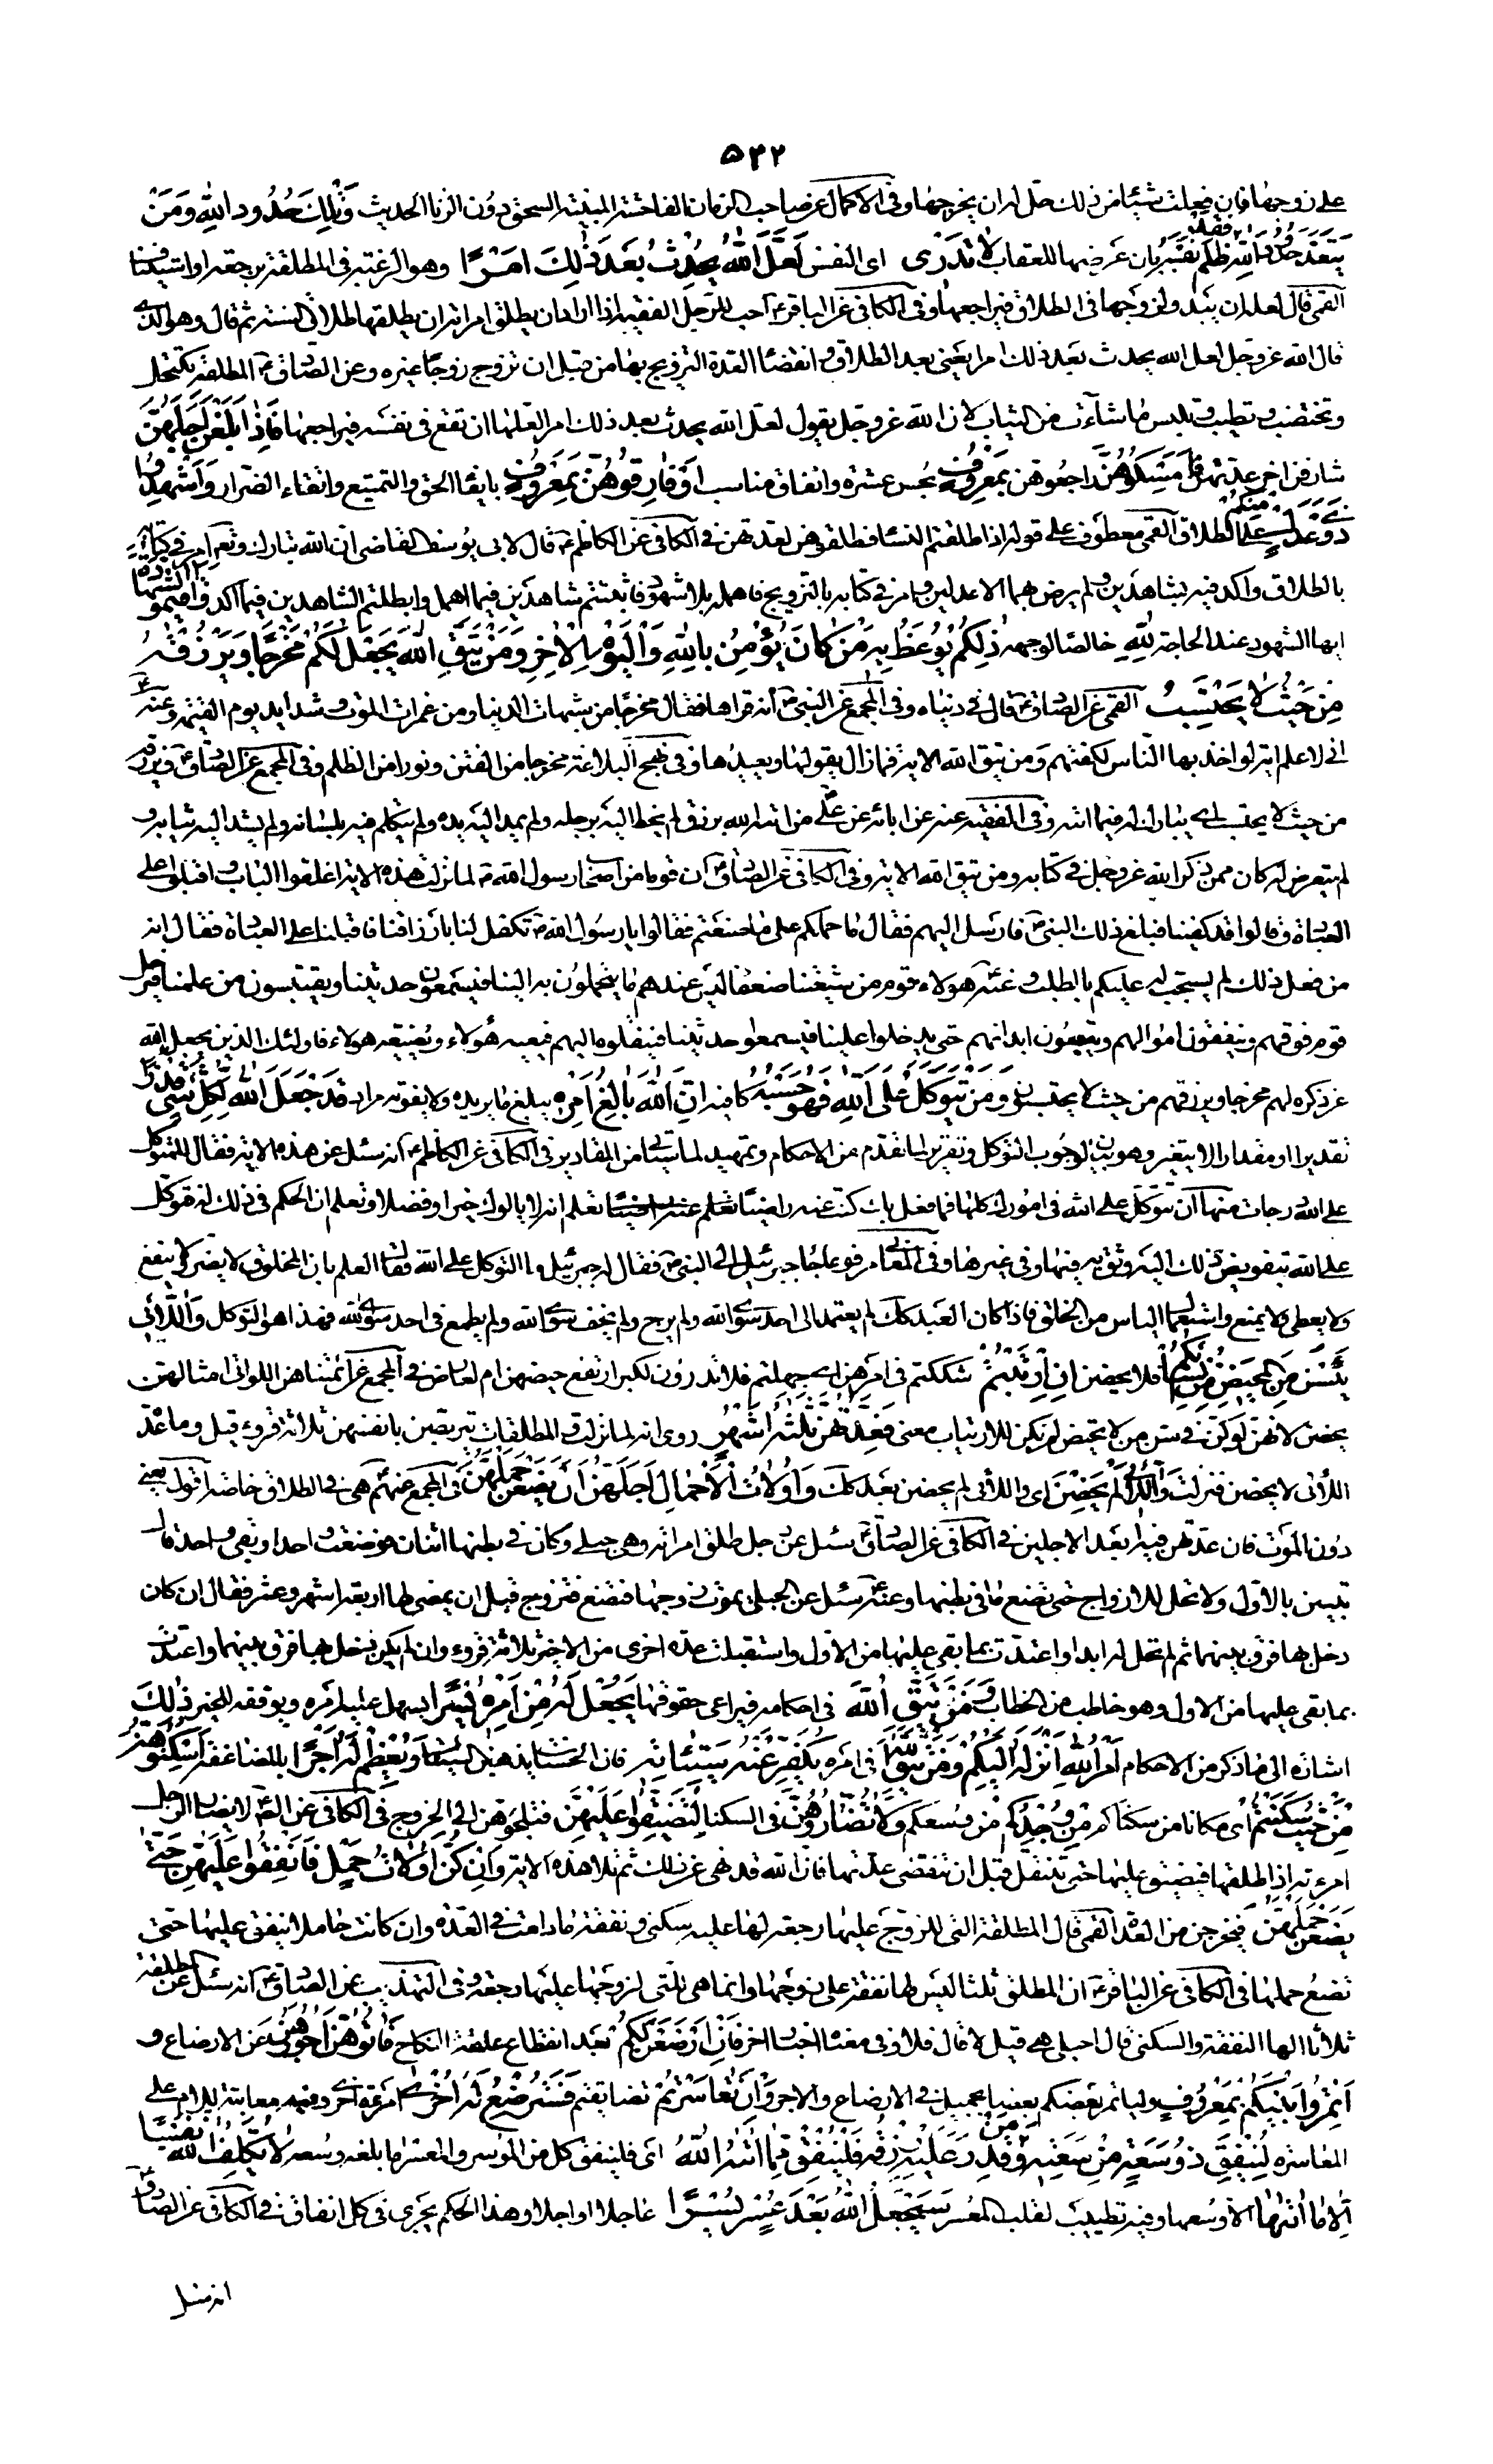 ٥٣٢
على زوجها فان فعلت شيئا من ذلك حل له ان يخرجها وفى الاكمال عن صاحب الزمان الفاحشة المبينة السحق دون الزنا الحديث وَتِلْكَ حُدُودُ اللهِ وَمَنْ
يَتَعَدَّ حُدُودَ اللهِ فَقَدْ ظَلَمَ نَفْسَهُ بان عرضها للعقاب لا تَدْرى اى النفس لَعَلَّ اللهَ يُحْدِثُ بَعْدَ ذلِكَ اَمْرًا وهو الرغبة فى المطلقة برجعة او استيناف
القمى قال لعله ان يبدو لزوجها فى الطلاق فيراجعها وفى الكافى عن الباقر ع احب للرجل الفقيه اذا اراد ان يطلق امراته ان يطلقها طلاق السنة ثم قال وهو الذى
قال الله عز وجل لعل الله يحدث بعد ذلك امرا يعنى بعد الطلاق وانقضاء العدة التزويج بها من قبل ان تزوج زوجا غيره وعن الصادق ع المطلقة تكتحل
وتختضب وتطيب وتلبس ما شاءت من الثياب لان الله عز وجل يقول لعل الله يحدث بعد ذلك امرا لعلها ان تقع فى نفسه فيراجعها فَاِذا بَلَغْنَ اَجَلَهُنَّ
شارفن اخر عدتهن فَاَمْسِكُوهُنَّ راجعوهن بِمَعْرُوفٍ بحسن عشرة وانفاق مناسب اَوْ فارِقُوهُنَّ بِمَعْرُوفٍ بايفاء الحق والتمتيع واتقاء الضرار وَاَشْهِدُوا
ذَوَىْ عَدْلٍ مِنْكُمْ على الطلاق القمى معطوف على قوله اذا طلقتم النساء فطلقوهن لعدتهن فى الكافى عن الكاظم ع قال لابى يوسف القاضى ان الله تبارك وتعالى امر فى كتابه
بالطلاق واكد فيه بشاهدين ولم يرض بهما الا عدلين وامر فى كتابه بالتزويج فاهمله بلا شهود فاثبتم شاهدين فيما اهمل وابطلتم الشاهدين فيما اكد وَاَقيمُوا الشَّهادَةَ
ايها الشهود عند الحاجة لِلّهِ خالصا لوجهه ذلِكُمْ يُوعَظُ بِه مَنْ كانَ يُؤْمِنُ بِاللهِ وَالْيَوْمِ الْاخِرِ وَمَنْ يَتَّقِ اللهَ يَجْعَلْ لَهُ مَخْرَجًا وَيَرْزُقْهُ
مِنْ حَيْثُ لا يَحْتَسِبُ القمى عن الصادق ع قال فى دنياه وفى المجمع عن النبى ص انه قراها فقال مخرجا من شبهات الدنيا ومن غمرات الموت وشدايد يوم القيمة وعنه ع
انى لاعلم اية لو اخذ بها الناس لكفتهم ومن يتق الله الاية فما زال يقولها ويعيدها وفى نهج البلاغة مخرجا من الفتن ونورا من الظلم وفى المجمع عن الصادق ع ويرزقه
من حيث لا يحتسب اى يبارك له فيما اتاه وفى الفقيه عنه عن ابائه عن على ع من اتاه الله برزق لم يخط اليه برجله ولم يمد اليه يده ولم يتكلم فيه بلسانه ولم يشد اليه ثيابه و
لم يتعرض له كان ممن ذكر الله عز وجل فى كتابه ومن يتق الله الاية وفى الكافى عن الصادق ع ان قوما من اصحاب رسول الله ص لما نزلت هذه الاية اغلقوا الباب واقبلوا على
العبادة وقالوا قد كفينا فبلغ ذلك النبى ص فارسل اليهم فقال ما حملكم على ما صنعتم فقالوا يا رسول الله ص تكفل لنا بارزاقنا فاقبلنا على العبادة فقال انه
من فعل ذلك لم يستجب له عليكم بالطلب وعنه ع هؤلاء قوم من شيعتنا ضعفا ليس عندهم ما يتحملون به الينا فيستمعون حديثنا ويقتبسون من علمنا فيرحل
قوم فوقهم وينفقون اموالهم ويتعبون ابدانهم حتى يدخلوا علينا فيسمعوا حديثنا فينقلوه اليهم فيعيه هؤلاء ويضيعه هؤلاء فاولئك الذين يجعل الله
عز ذكره لهم مخرجا ويرزقهم من حيث لا يحتسبون وَمَنْ يَتَوَكَّلْ عَلَى اللهِ فَهُوَ حَسْبُهُ كافيه اِنَّ اللهَ بالِغُ اَمْرِه يبلغ ما يريده ولا يفوته مراد قَدْ جَعَلَ اللهُ لِكُلِّ شَىْءٍ قَدْرًا
تقديرا او مقدارا لا يتغير وهو بيان لوجوب التوكل وتقرير لما تقدم من الاحكام وتمهيد لما سياتى من المقادير فى الكافى عن الكاظم ع انه سئل عن هذه الاية فقال للتوكل
على الله درجات منها ان تتوكل على الله فى امورك كلها فما فعل بك كنت عنه راضيا تعلم انه لا يالوك خيرا وفضلا وتعلم ان الحكم فى ذلك له فتوكل
على الله بتفويض ذلك اليه وثق به فيها وفى غيرها وفى المعانى مرفوعا جاء جبرئيل الى النبى ص فقال له جبرئيل وما التوكل على الله فقال العلم بان المخلوق لا يضر ولا ينفع
ولا يعطى ولا يمنع واستعمال الياس من الخلق فاذا كان العبد كك لم يعتمد الى احد سوى الله ولم يرج ولم يخف سوى الله ولم يطمع فى احد سوى الله فهذا هو التوكل وَاللّائى
يَئِسْنَ مِنَ الْمَحيضِ مِنْ نِسائِكُمْ فلا يحضن اِنِ ارْتَبْتُمْ شككتم فى امرهن اى جهلتم فلا تدرون لكبر ارتفع حيضهن ام لعارض فى المجمع عن ائمتنا هن اللواتى امثالهن
يحضن لانهن لو كن فى سن من لا يحيض لم يكن للارتياب معنى فَعِدَّتُهُنَّ ثَلثَةُ اَشْهُرٍ روى انه لما نزلت والمطلقات يتربصن بانفسهن ثلاثة قروء قيل وما عدة
اللائى لا يحضن فنزلت وَاللّائى لَمْ يَحِضْنَ اى واللائى لم يحضن بعد كك وَاُولاتُ الْاَحْمالِ اَجَلُهُنَّ اَنْ يَضَعْنَ حَمْلَهُنَّ فى المجمع عنهم هى فى الطلاق خاصة اقول يعنى
دون الموت فان عدتهن فيه ابعد الاجلين فى الكافى عن الصادق ع سئل عن رجل طلق امراته وهى حبلى وكان فى بطنها اثنان فوضعت واحدا وبقى واحد قال
تبين بالاول ولا تحل للازواج حتى تضع ما فى بطنها وعنه ع سئل عن الحبلى يموت زوجها فتضع فتزوج قبل ان يمضى لها اربعة اشهر وعشر فقال ان كان
دخل بها فرق بينهما ثم لم تحل له ابدا واعتدت بما بقى عليها من الاول واستقبلت عدة اخرى من الاخر ثلاثة قروء وان لم يكن دخل بها فرق بينهما واعتدت
بما بقى عليها من الاول وهو خاطب من الخطاب وَمَنْ يَتَّقِ اللهَ فى احكامه فيراعى حقوقها يَجْعَلْ لَهُ مِنْ اَمْرِه يُسْرًا يسهل عليه امره ويوفقه للخير ذلِكَ
اشارة الى ما ذكر من الاحكام اَمْرُ اللهِ اَنْزَلَهُ اِلَيْكُمْ وَمَنْ يَتَّقِ اللهَ فى امره يُكَفِّرْ عَنْهُ سَيِّئاتِه فان الحسنات يذهبن السيئات وَيُعْظِمْ لَهُ اَجْرًا بالمضاعفة اَسْكِنُوهُنَّ
مِنْ حَيْثُ سَكَنْتُمْ اى مكانا من سكناكم مِنْ وُجْدِكُمْ من وسعكم وَلا تُضارُّوهُنَّ فى السكنى لِتُضَيِّقُوا عَلَيْهِنَّ فتلجؤهن الى الخروج فى الكافى عن الصادق ع لا يضار الرجل
امرءته اذا طلقها فيضيق عليها حتى تنتقل قبل ان تنقضى عدتها فان الله قد نهى عن ذلك ثم تلا هذه الاية وَاِنْ كُنَّ اُولاتِ حَمْلٍ فَاَنْفِقُوا عَلَيْهِنَّ حَتّى
يَضَعْنَ حَمْلَهُنَّ فيخرجن من العدة القمى قال المطلقة التى للزوج عليها رجعة لها عليه سكنى ونفقة ما دامت فى العدة وان كانت حاملا ينفق عليها حتى
تضع حملها فى الكافى عن الباقر ع ان المطلقة ثلثا ليس لها نفقة على زوجها وانما هى للتى لزوجها عليها رجعة وفى التهذيب عن الصادق ع انه سئل عن المطلقة
ثلاثا الها النفقة والسكنى قال احبلى هى قيل لا قال فلا وفى معناه اخبار اخر فَاِنْ اَرْضَعْنَ لَكُمْ بعد انقطاع علقة النكاح فَاتُوهُنَّ اُجُورَهُنَّ عن الارضاع و
اْتَمِرُوا بَيْنَكُمْ بِمَعْرُوفٍ وليامر بعضكم بعضا بجميل فى الارضاع والاجر وَاِنْ تَعاسَرْتُمْ تضايقتم فَسَتُرْضِعُ لَهُ اُخْرى امرءة اخرى وفيه معاتبة للام على
المعاشرة لِيُنْفِقْ ذُو سَعَةٍ مِنْ سَعَتِه وَمَنْ قُدِرَ عَلَيْهِ رِزْقُهُ فَلْيُنْفِقْ مِمّا اتاهُ اللهُ اى فلينفق كل من الموسر والمعسر ما بلغه وسعه لا يُكَلِّفُ اللهُ نَفْسًا
اِلّا ما اتاها الا وسعها وفيه تطييب لقلب المعسر سَيَجْعَلُ اللهُ بَعْدَ عُسْرٍ يُسْرًا عاجلا او اجلا وهذا الحكم يجرى فى كل انفاق فى الكافى عن الصادق ع
انه سئل